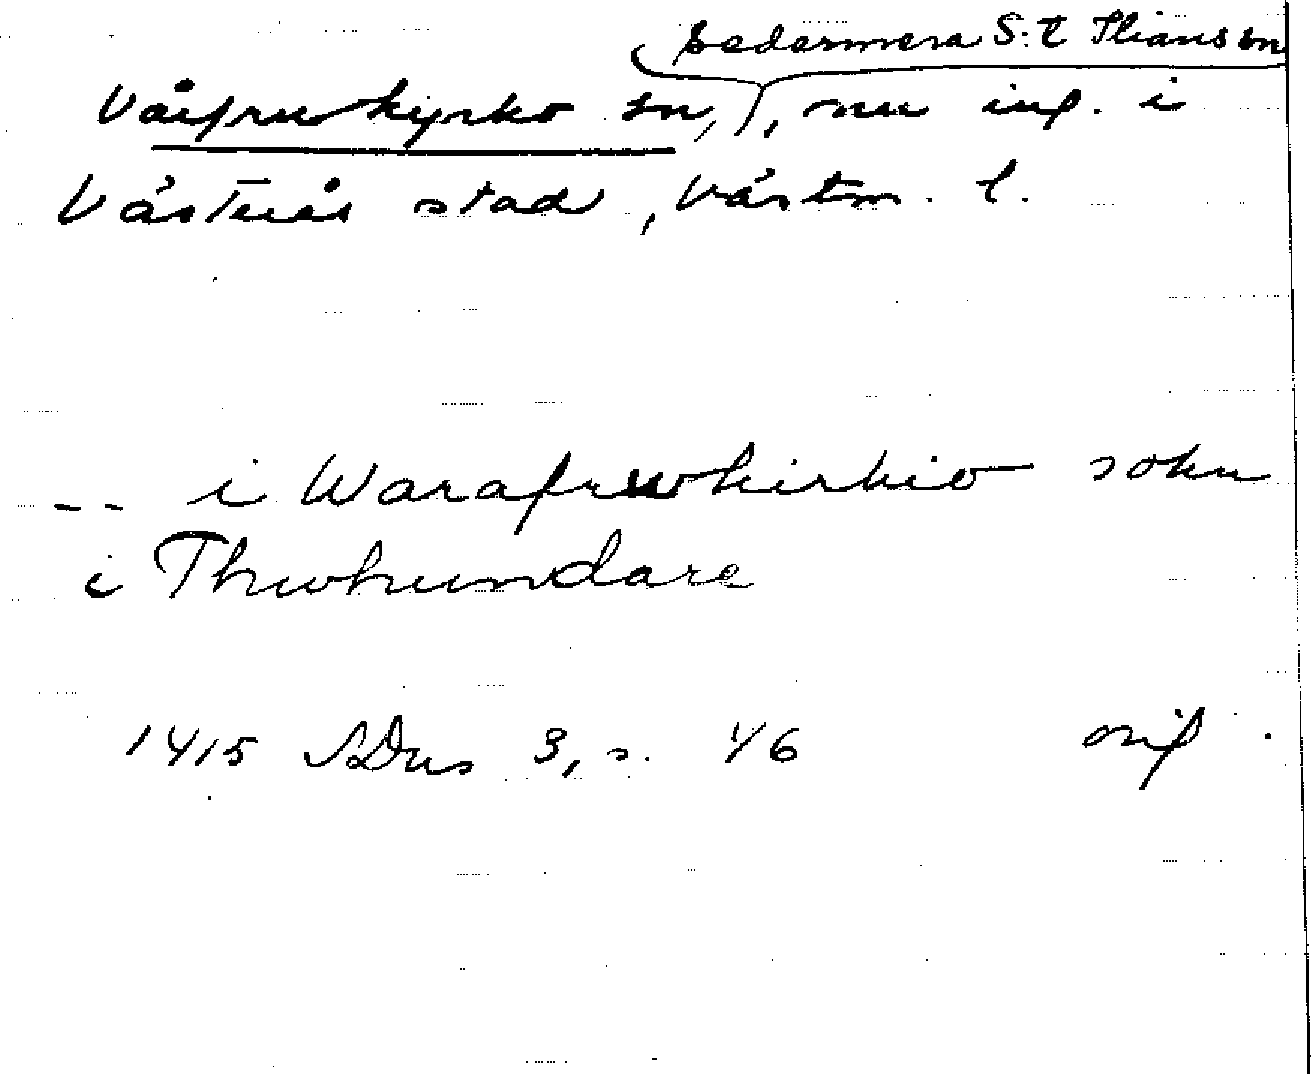 (sedermera S:t Ilians sn)
Vårfrukyrko sn, nu ing. i
Västerås stad, Västm. l.
-- i Warafrwkirkio sokn
i Thwhundare
1415 SDns 3, s. 46 orig.